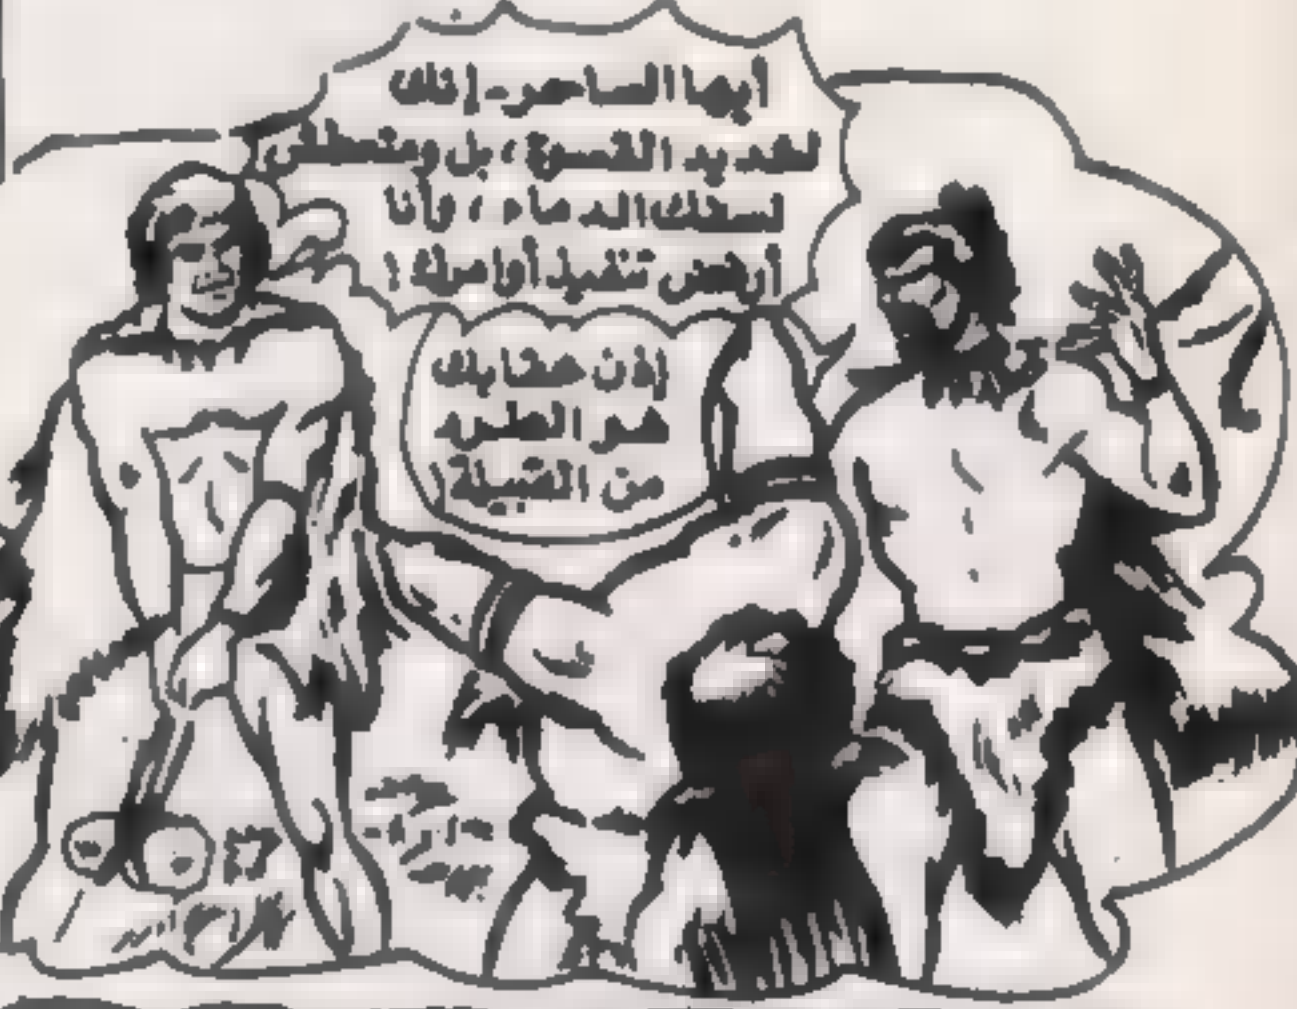 أيها الساحر - إنك
لشديد القسوة، بل ومتعطش
لسفك الدماء، وأنا
أرفض تنفيذ أوامرك!
إذن عقابك
هو الطرد
من القبيلة!